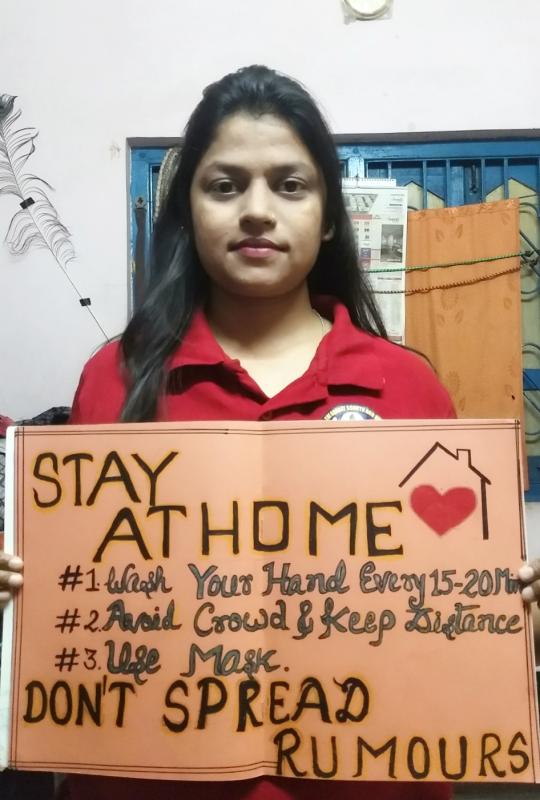 STAY
AT HOME
#1. Wash Your Hand Every 15-20 Min
#2. Avoid Crowd & Keep Distance
#3. Use Mask.
DON'T SPREAD
RUMOURS